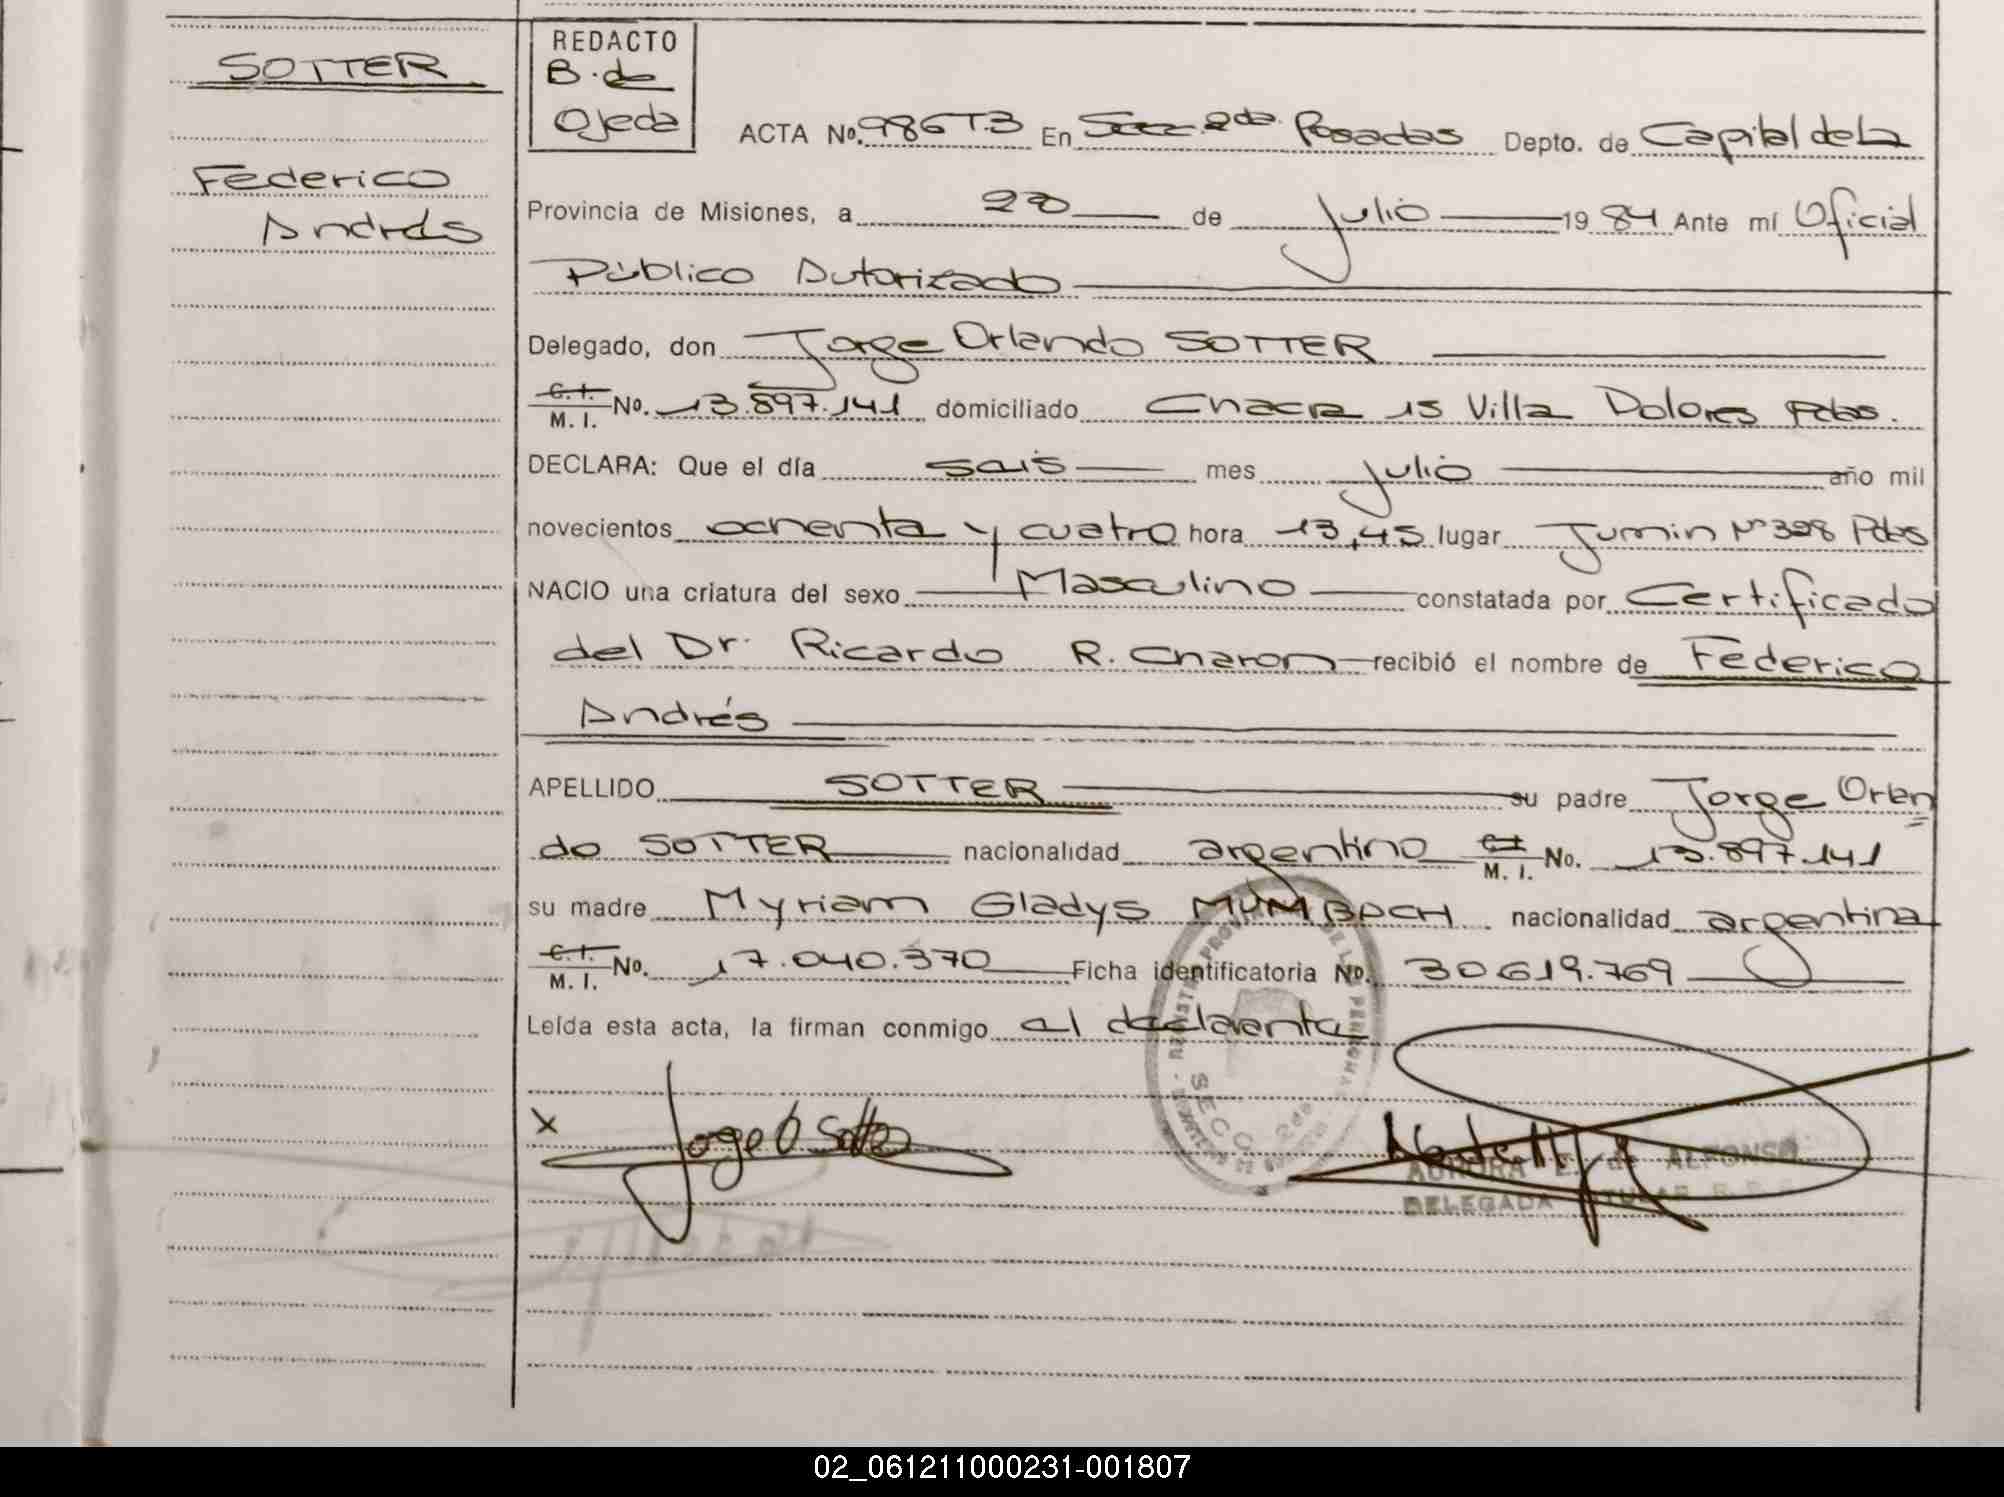 SOTTER
Federico
Andrés
REDACTO
B. de
Ojeda
ACTA No. 986 T.3 En Secc. 2da. Posadas Depto. de Capital de La
Provincia de Misiones, a 20 de Julio 1984 Ante mí Oficial
Público Autorizado
Delegado, don Jorge Orlando SOTTER
C. I.
M. I. No. 13.897.141 domiciliado Chacra 15 Villa Dolores Pdas.
DECLARA: Que el día seis mes Julio año mil
novecientos ochenta y cuatro hora 13,45 lugar Junin Nº 398 Pdas
NACIO una criatura del sexo Masculino constatada por Certificado
del Dr. Ricardo R. Charon recibió el nombre de Federico
Andrés
APELLIDO SOTTER su padre Jorge Orlan
do SOTTER nacionalidad argentino C.I.
M. I. No. 13.897.141
su madre Myriam Gladys MUMBACH nacionalidad argentina
C. I.
M. I. No. 17.040.370 Ficha identificatoria No. 30619.769
Leída esta acta, la firman conmigo el declarante
SECC. 2da
x Jorge O Sotter
AURORA E. de ALFONSO
DELEGADA TITULAR R. P.
02_061211000231-001807